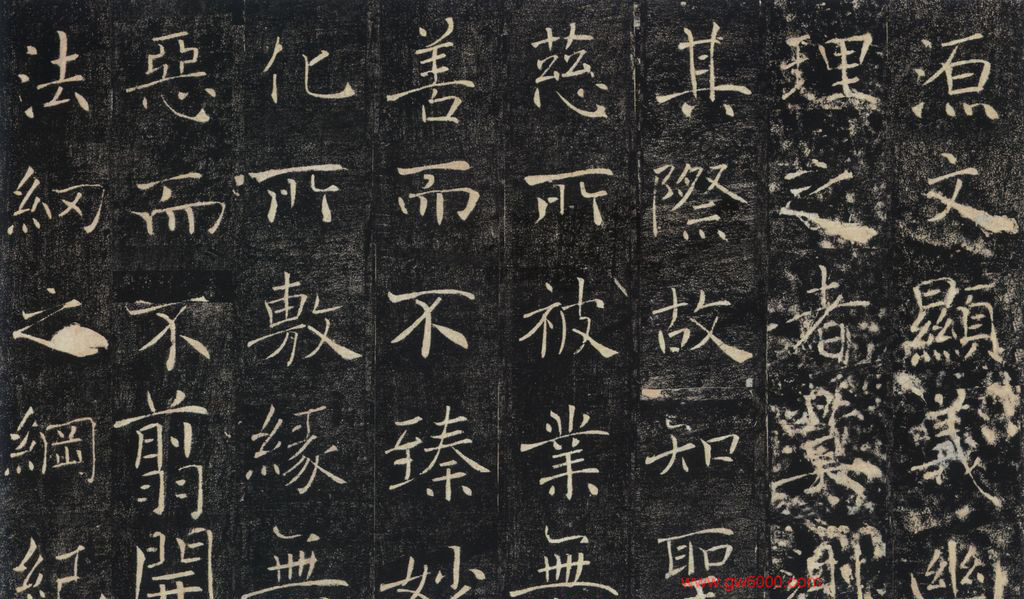 源文顯義幽
理之者莫測
其際故知聖
慈所被業無
善而不臻妙
化所敷緣無
惡而不翦開
法網之綱紀
www.gw5000.com